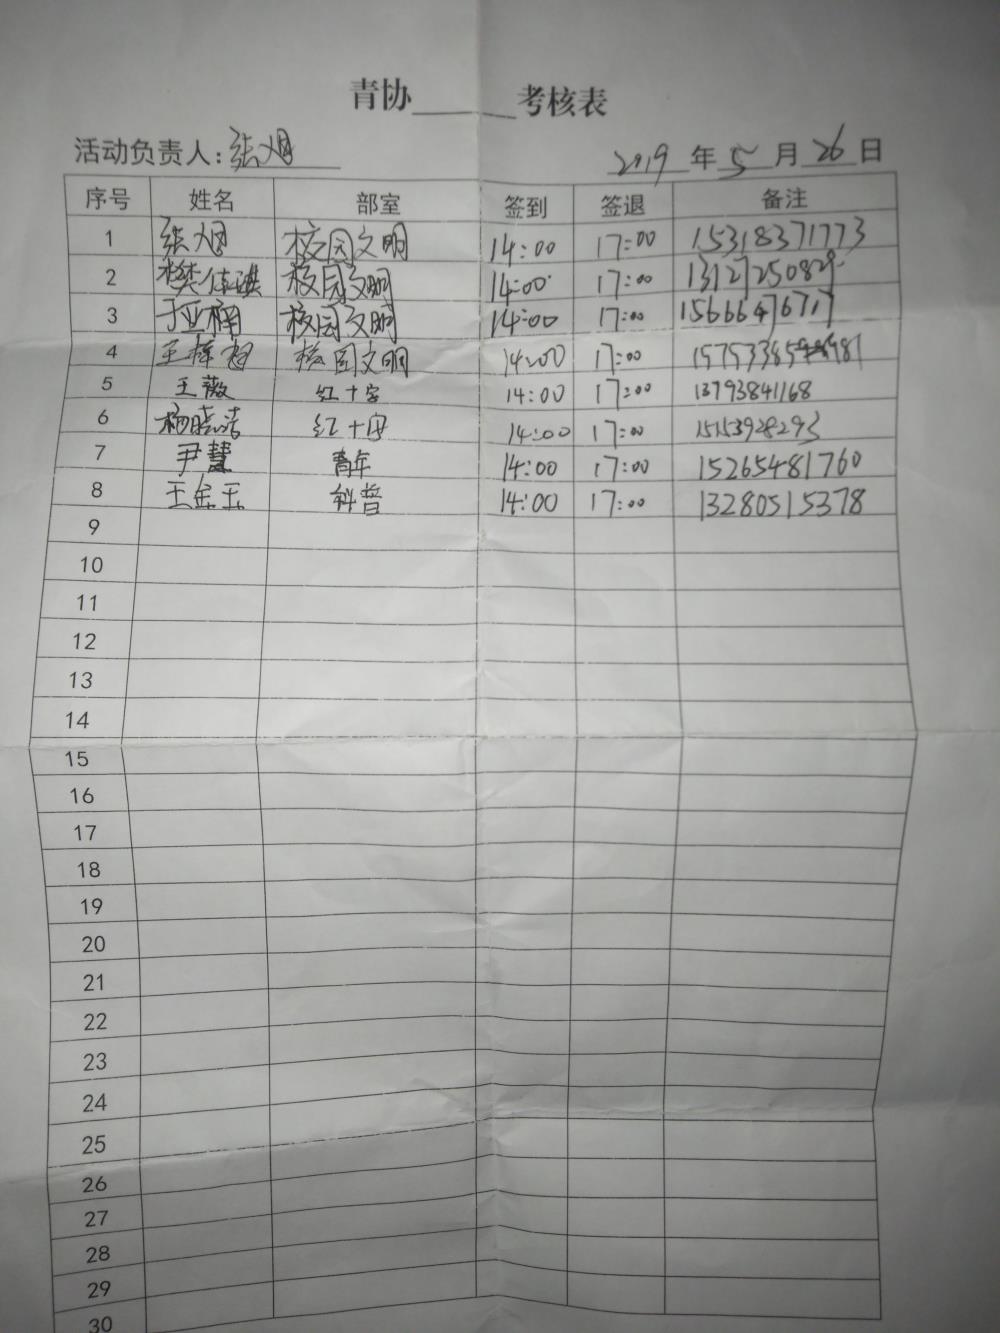 青协______考核表
活动负责人：张旭 2019 年 5 月 26 日
序号 姓名 部室 签到 签退 备注
1 张旭 校园文明 14:00 17:00 15318371773
2 樊佳琪 校园文明 14:00 17:00 1312725082
3 于亚楠 校园文明 14:00 17:00 15666476717
4 王梓 校园文明 14:00 17:00
5 王薇 红十字 14:00 17:00 13793841168
6 杨晓洁 红十字 14:00 17:00 15153928293
7 尹慧 青年 14:00 17:00 15265481760
8 王金玉 科普 14:00 17:00 13280515378
9
10
11
12
13
14
15
16
17
18
19
20
21
22
23
24
25
26
27
28
29
30